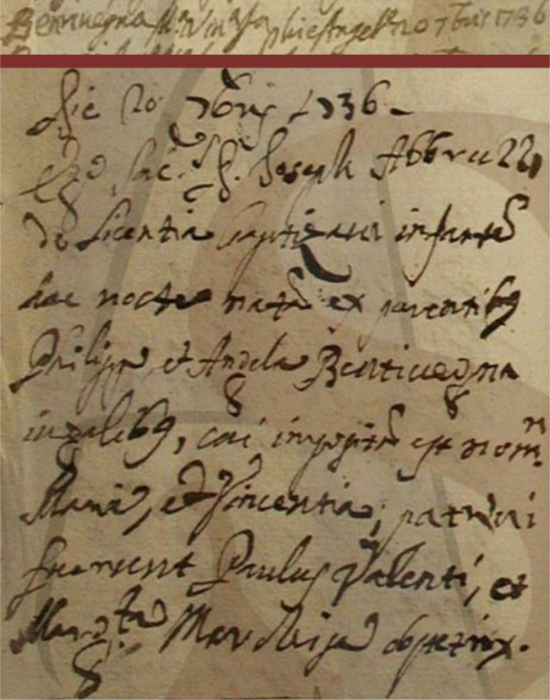 Bentivegna M.ª Vin.ª Phi.e Angel 20 7bris 1736
Die 20 7bris 1736
Ego Sac. D. Joseph Abbruzz
de licentia baptizavi infantē
hac nocte natā ex parentibꝰ
Philippo et Angela Bentivegna
jugalibꝰ, cui impositū est nomn̄
Maria, et Vincentia, patrini
fuerunt Paulus Valenti, et
Marg.ta obstetrix.